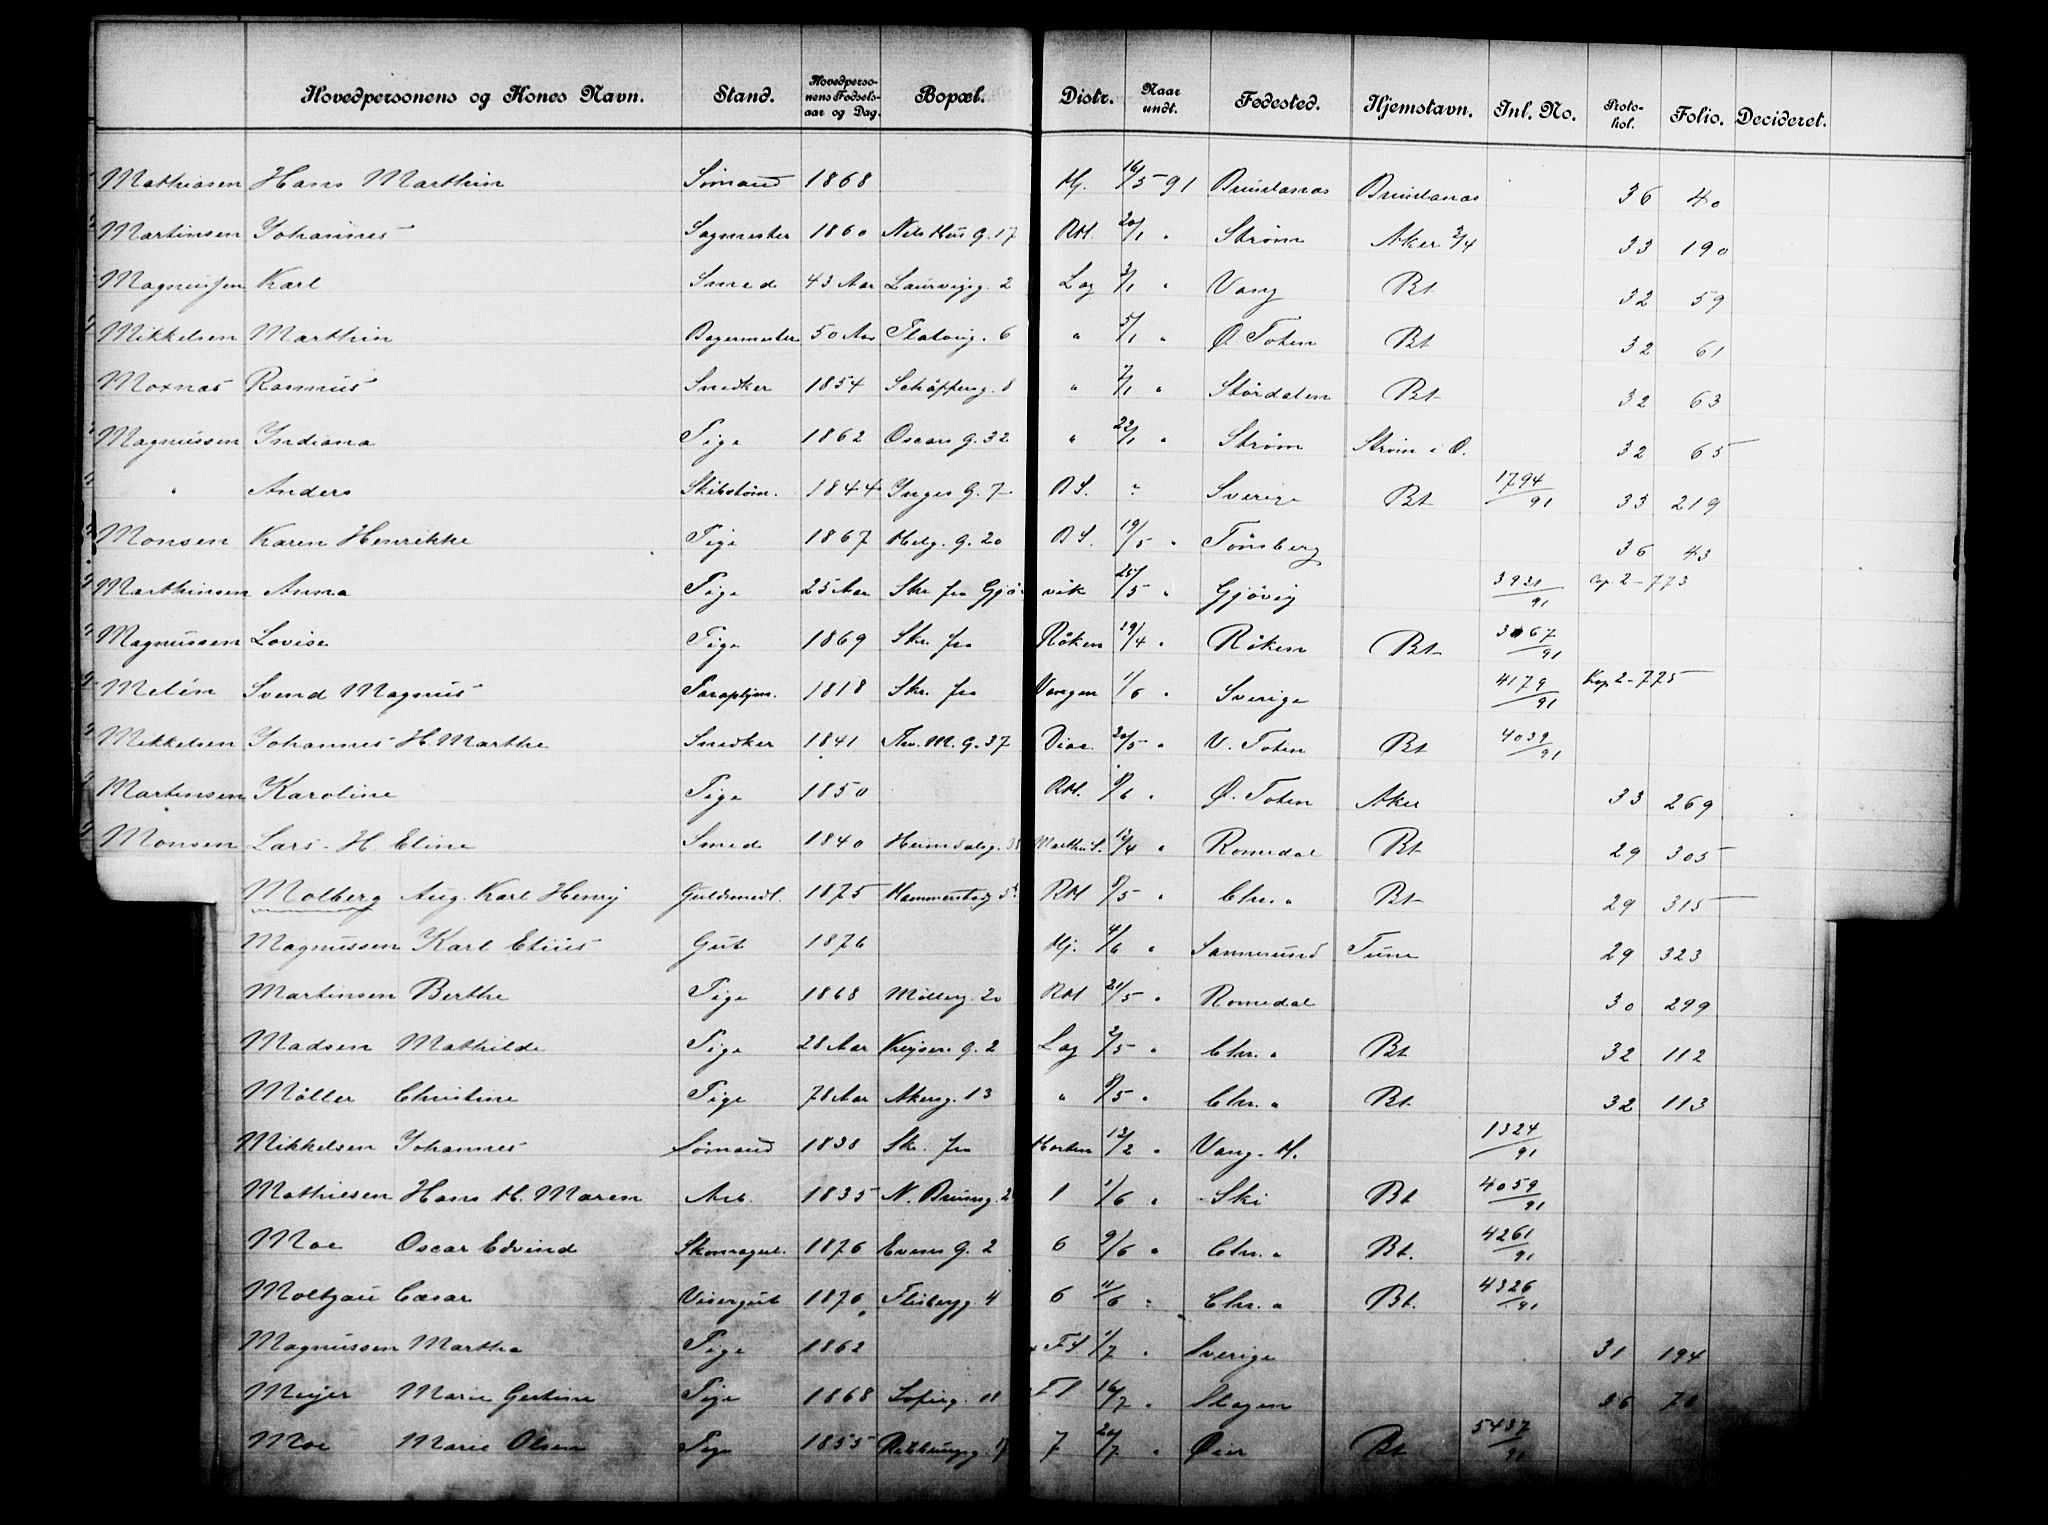 Hovedpersonens og Kones Navn. Stand. Hovedpersonens Fødselsaar og Dag. Bopæl. Distr. Naar undt. Fødested. Hjemstavn. Inl. No. Protokol. Folio. Decideret.
Mathiasen Hans Marthin Sømand 1868 Hj. 16/5 91 36 40
Martinsen Johannes Sagmester 1860 Nils Hus G. 17 RM. 20/1 " Strøm Aker 3/4 33 190
Magnussen Karl Smed 43 Aar Laurvigsg. 2 Lag 3/1 " Vang Bt 32 59
Mikkelsen Marthin Bagermester 50 Aar 6 " 5/1 " Ø. Toten Bt 32 61
Moxnæs Rasmus Snedker 1854 8 " 7/1 " Stördalen Bt 32 63
Magnussen Indiana Pige 1862 Oscars G. 32 " 22/1 " Strøm Strøm i O. 32 65
" Anders Skibstøm. 1844 Inges G. 7 BS. " Sverige Bt 1794/91 33 219
Monsen Karen Henrikke Pige 1867 Helg. G. 20 BS. 19/5 " Tønsberg 36 43
Marthinsen Anna Pige 25 Aar Skr. fra Gjøvik 25/5 " Gjövig 3931/91 Cop 2-773
Magnussen Lovise Pige 1869 Skr. fra Röken 29/4 " Röken Bt 3067/91
Melén Svend Magnus 1818 Skr. fra Vangen 1/6 " Sverige 4179/91 Kop 2-775
Mikkelsen Johannes H. Marthe Snedker 1841 Thv. M. G. 37 Diac. 20/5 " V. Toten Bt 4039/91
Martinsen Karoline Pige 1850 RM. 8/6 " Ø. Toten Aker 33 269
Monsen Lars H. Eline Smed 1840 Heimdalsg. Marthas. 13/4 " Romedal Bt 29 305
Molberg Aug. Karl Henry Guldsmedl. 1875 Hammerstadg RM 8/5 " Chr.a Bt 29 315
Magnussen Karl Elius Gut 1876 Hj. 4/6 " Sannesund Tune 29 323
Martinsen Berthe Pige 1868 Möllerg. 20 RM 21/5 " Romedal 30 299
Madsen Mathilde Pige 28 Aar Keysers G. 2 Lag 2/5 " Chr.a Bt 32 112
Möller Christine Pige 78 Aar Akersg. 13 " 8/5 " Chr.a Bt 32 113
Mikkelsen Johannes Sømand 1838 Skr. fra Horten 12/2 " Vang. H. 1324/91
Mathiesen Hans H. Maren Arb. 1835 N. Brunsg. 1 1/6 " Ski Bt 4059/91
Moe Oscar Edvind Skomagerl. 1876 Evens G. 2 6 9/6 " Chr.a Bt. 4261/91
Moltzau Cæsar Visergut 1876 Flisbergg. 4 6 11/6 " Chr.a Bt. 4326/91
Magnussen Martha Pige 1862 FS. 1/7 " Sverige 31 194
Meyer Marie Gertine Pige 1868 Sofieg. 11 16/7 " Slagen 36 70
Moe Marie Olsen Pige 1855 7 20/7 " Øier Bt 5437/91